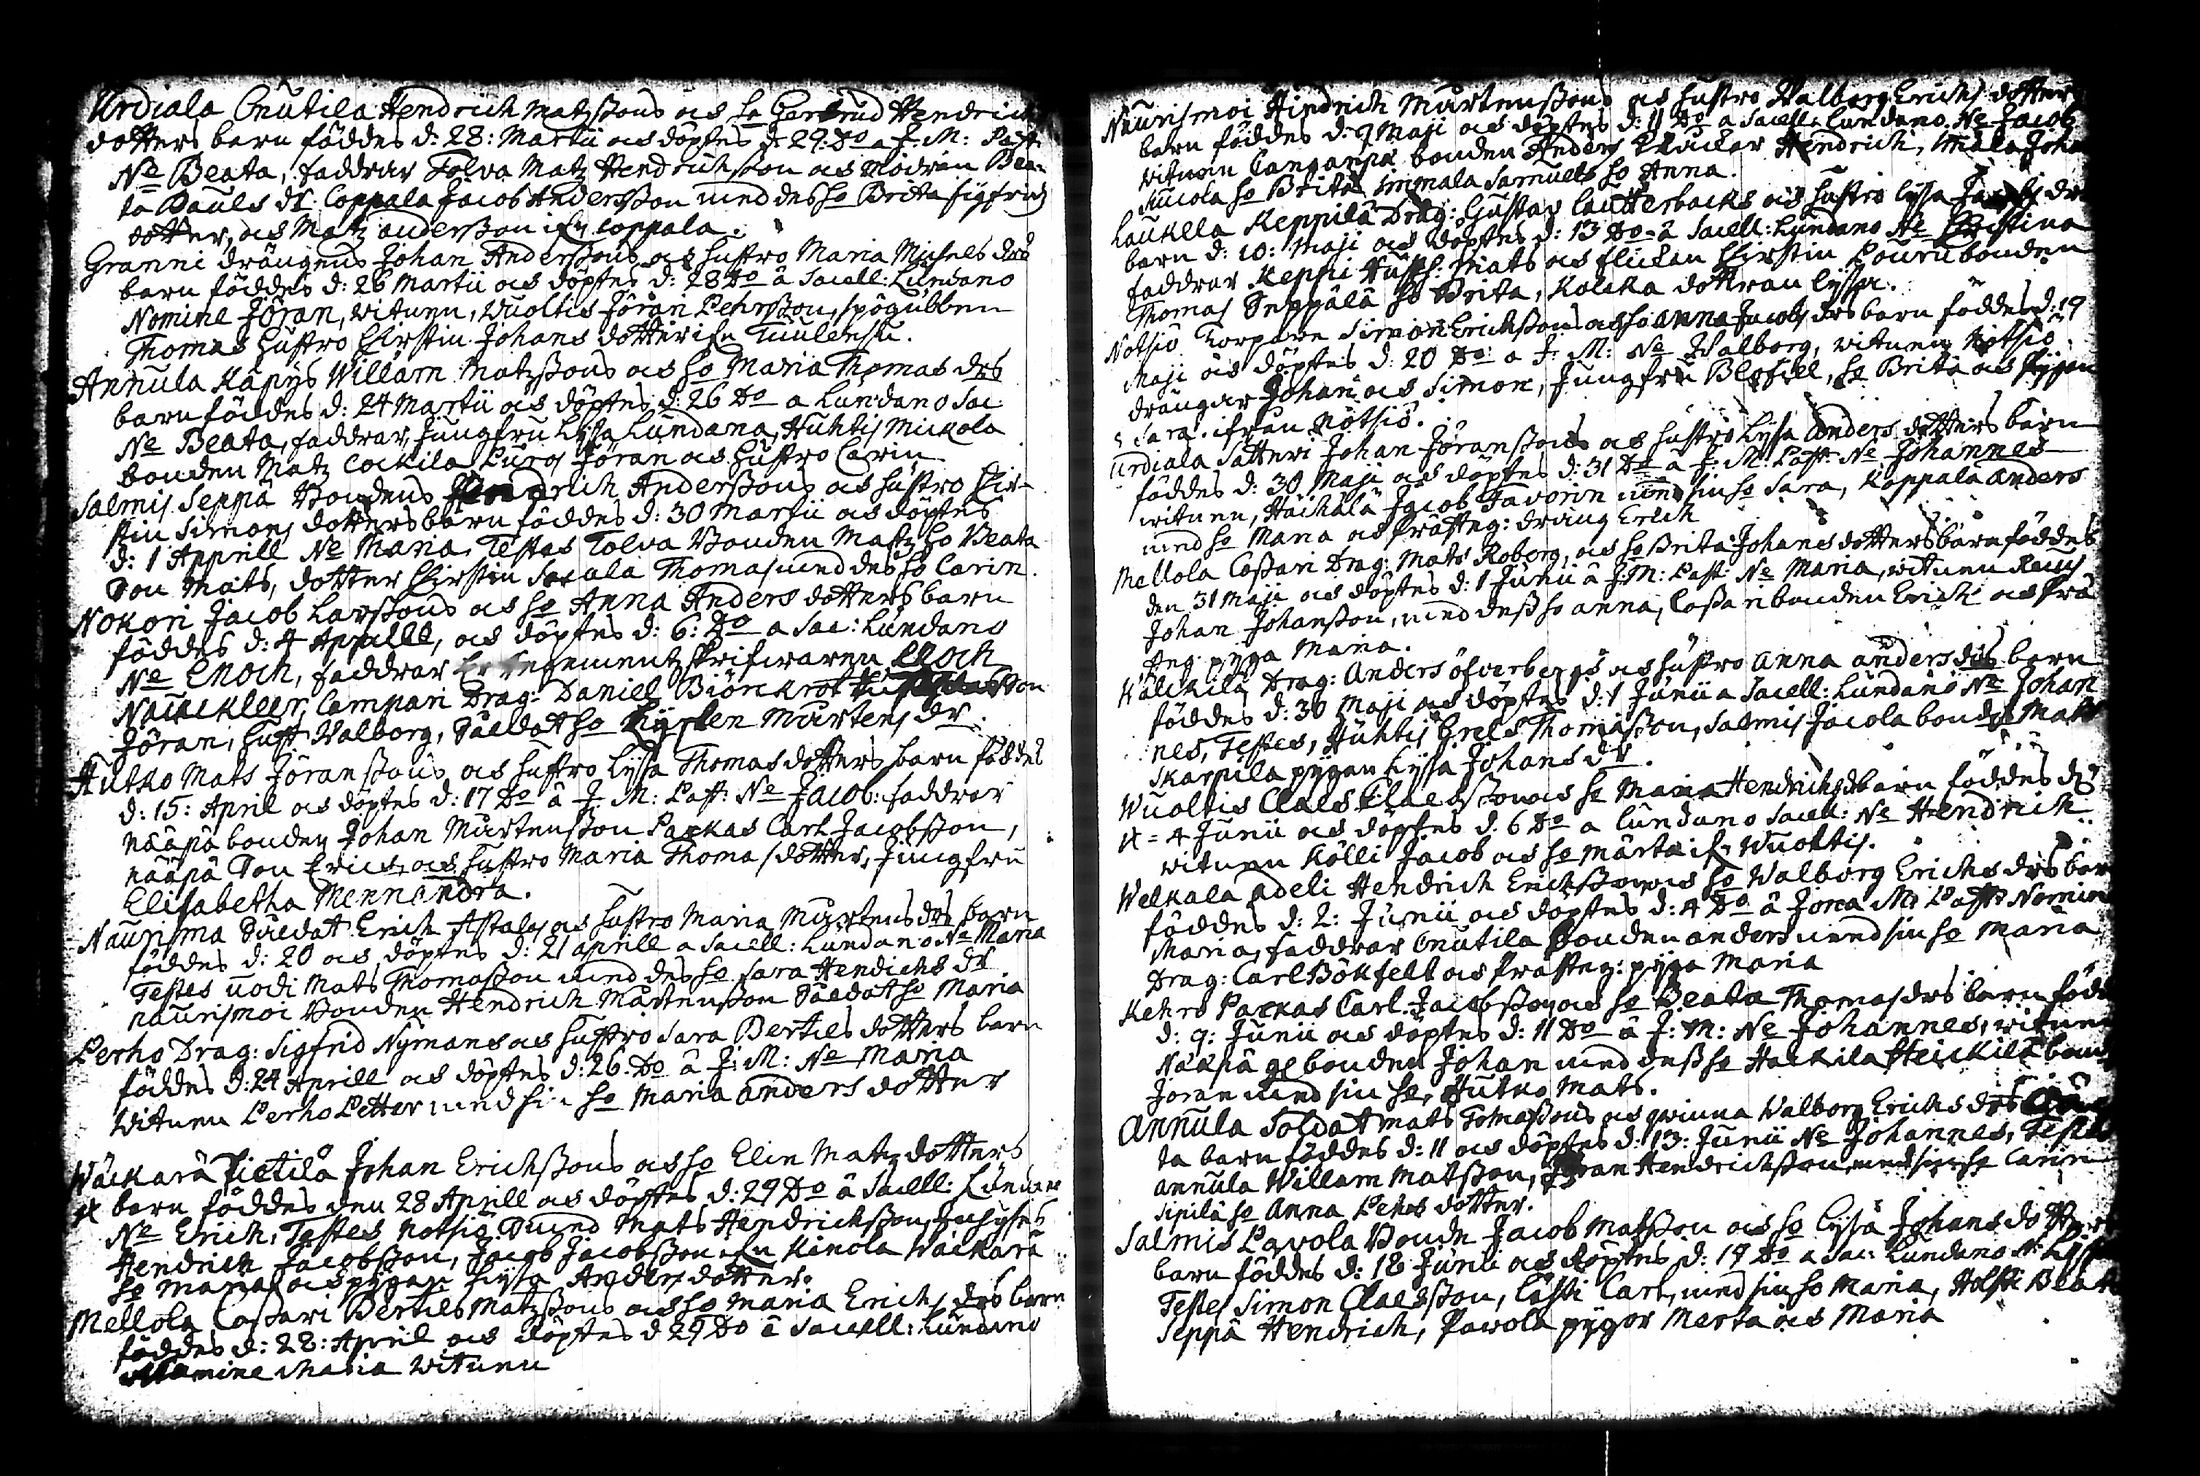 Urdiala Cnutila Hendrich Matzßons och ho Gertrud Hendrichs
dotters barn föddes d: 28: Martii och döptes d: 29: Do a J. M: Past:
Ne Beata, faddrar Tolva Matz Hendrichßon och Modren Bea-
ta Pauls dr: Coppala Jacob Anderßon med des ho Brita Sigfridz
dotter, och Matz anderßon ifn Coppala.
Granni drängens Johan Anderßons och hustro Maria Michels drs
barn föddes d: 26 Martii och döptes d: 28 Do â Sacell: Lundano
Nomine Jöran, witnen, Wuoltis Jöran Pehrßon, Spögubben
Thomas hustro Chirstin Johans dotter ifn Tuulensu.
Annula Käpys Willam Matzßons och ho Maria Thomas drs
barn föddes d: 24 Martii och döptes d: 26 Do a Lundano Sac:
Ne Beata, faddrar Jungfru Lysa Lundana, Huhtis Mickola
bonden Matz Cockila Jöran och hustro Carin
Salmis Seppä Bondens Hendrich Anderßons och hustro Chir-
stin Simons dotters barn föddes d: 30 Martii och döptes
d: 1 Apprill Ne Maria, Testes Tolva Bonden Matz ho Beata
Son Mats, dotter Chirstin Thomas med des ho Carin.
Nokori Jacob Larßons och ho Anna Anders dotters barn
föddes d: 4 Aprill, och döptes d: 6: Do a Sac: Lundano
Ne Enoch, faddrar Regementz skrifwaren Enoch
Drag: Daniel Biörckrot
Jöran, hust: Walborg, Såldat ho Mårtens dr.
Hutko Mats Jöranßons och hustro Lysa Thomas dotters barn föddes
d: 15: April och döptes d: 17 Do â J. M: Past: Ne Jacob: faddrar
Nääpä bonden Johan Mårtenßon Parkas Carl Jacobßon,
Nääpä Son Erich, och hustro Maria Thomas dotter, Jungfru
Elisabetha Mennandra.
Naurisma Såldat Erich och hustro Maria Mårtens drs barn
föddes d: 20 och döptes d: 21 aprill a Sacell: Lundano Ne Maria
Testes uodi Mats Thomaßon med des ho Sara Hendichs dr
naurismoi Bonden Hendrich Mårtenßon Såldat ho Maria
Perho Drag: Sigfrid Nymans och hustro Sara Bertils dotters barn
föddes d: 24 Aprill och döptes d: 26. Do â J: M: Ne Maria
Witnen Perho Petter med sin ho Maria anders dotter
Wäckarä Pietilä Johan Erichßons och ho Elin Matz dotters
barn föddes den 28 Aprill och döptes d: 29 Do â Sacell: Lundano
Ne Erich, Testes Notsiö Mats Hendrichßon, Inhyses
Hendrich Jacobßon, Jacob Jacobßon ifn Kinola Wäckarä
ho Maria och pygan Lysa Anders dotter.
Mellola Coßari Bertils Matzßons och ho Maria Erichs drs barn
föddes d: 28: April och döptes d 29 Do â Sacell: Lundano
Nomine Maria Witnen
Naurismoi Hindrich Mårtenßons och hustro Walborg Erichs dotters
barn föddes d: 9 Maji och döptes d: 11 Do a Sacell: Lundano Ne Jacob
witnen Canganpä bonden Anders Hendrich, Johan
ho Brita Immala Samuels ho Anna.
Laukela Keppilä Drag: Gustav Lautterbacks och hustro Lyssa Jacobs drs
barn d: 10: Maji och döptes d: 13 Do â Sacell: Lundano Ne Christina
faddrar Keppi Hußh: Mats och flickan Chirstin Louru bonden
Thomas Seppälä ho Brita, dottran Lyssa.
Notsiö Torpare Simon Erichßons och ho Anna Jacobs drs barn föddes d: 19
Maji och döptes d: 20 Do a J. M: Ne Walborg, witnen Notsiö
drängar Johan och Simon, Jungfru Blofiell, ho Brita och Pygan
Sara ifrån Notsiö.
Urdiala Satteri Johan Jöranßons och hustro Lysa Anders dotters barn
föddes d: 30 Maji och döptes d: 31 Do â J: M: Past: Ne Johannes
witnen, Jacob Favorin med sin ho Sara, Koppala Anders
med ho Maria och Prästeg: dräng Erich
Mellola Coßari Drag: Mats Roborg, och ho Brita Johans dotters barn föddes
den 31 Maji och döptes d: 1 Junii â J.M: Past: Ne Maria, witnen
Johan Johanßon, med deß ho anna, Coßari bonden Erich och Prä
steg: pyga Maria.
Wälckilä Drag: Anders Öfverbergs och hustro Anna anders drs barn
föddes d: 30 Maji och döptes d: 1 Junii a Sacell: Lundano Ne Johan
nes, Testes, Huhtis Grels Thomaßon, Salmis Jacola bonden Mats
Skarpila pygan Lysa Johans dr.
Wuoltis Claes Claesßons och ho Maria Hendrichs drs barn föddes d:
4 Junii och döptes d: 6 Do a Lundano Sacell: Ne Hendrich
witnen Kölli Jacob och ho Märta ifn Wuoltis.
Welkala Adeli Hendrich Erichßons och ho Walborg Erichs drs barn
föddes d: 2: Junii och döptes d: 4 Do â Jona M: Past: Nomine
Maria, faddrar Cnutila bonden anders med sin ho Maria
Drag: Carl Bökfelt och Prästeg: pyga Maria
Kehro Parkas Carl Jacobßons och ho Beata Thomas drs barn föddes
d: 9: Junii och döptes d: 11 Do â J: M: Ne Johannes, witnen
Nääpä bonden Johan med deß ho Hackila Heickilä bonden
Jöran med sin ho, Hutko Mats.
Annula Soldat Mats Tomaßons och qwinna Walborg Erichs drs
ta barn föddes d: 11 och döptes d: 13: Junii Ne Johannes, Testes
annula Willam Matßon, Jöran Hendrichßon, med sin ho Carin
Sipilä ho Anna Pehrs dotter.
Salmis Pavola Bonde Jacob Matßon och ho Lyssa Johans dotters
barn föddes d: 18 Junii och döptes d: 19 Do a Sac: Lundano Ne Lyssa
Testes Simon Claesßon, Carl, med sin ho Maria, Beata
Seppä Hendrich, Pavola pygor Marta och Maria